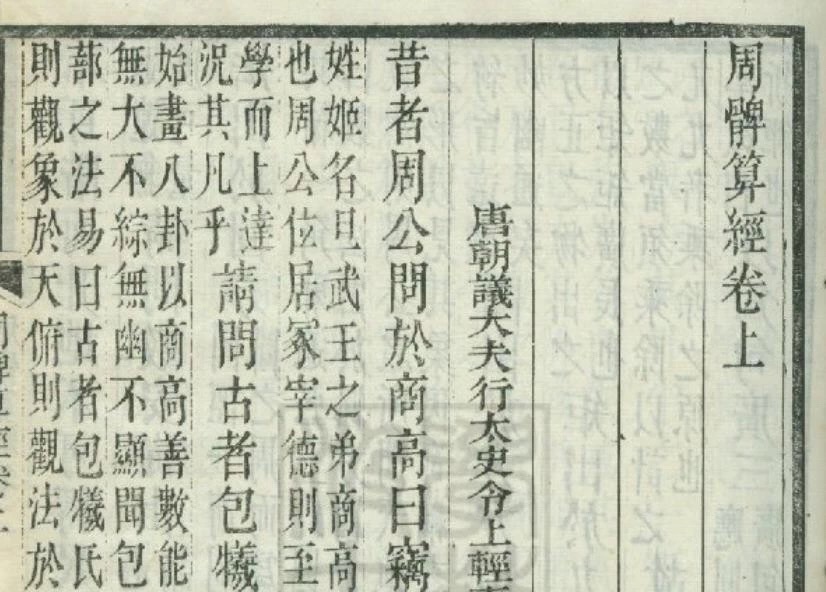 周髀算經卷上
唐朝議大夫行太史令上輕
昔者周公問於商高曰竊
姓姬名旦武王之弟商高
也周公位居冢宰德則至
學而上達
況其凡乎
請問古者包犧
始畫八卦以商高善數能
無大不綜無幽不顯聞包
蔀之法易曰古者包犧氏
則觀象於天俯則觀法於